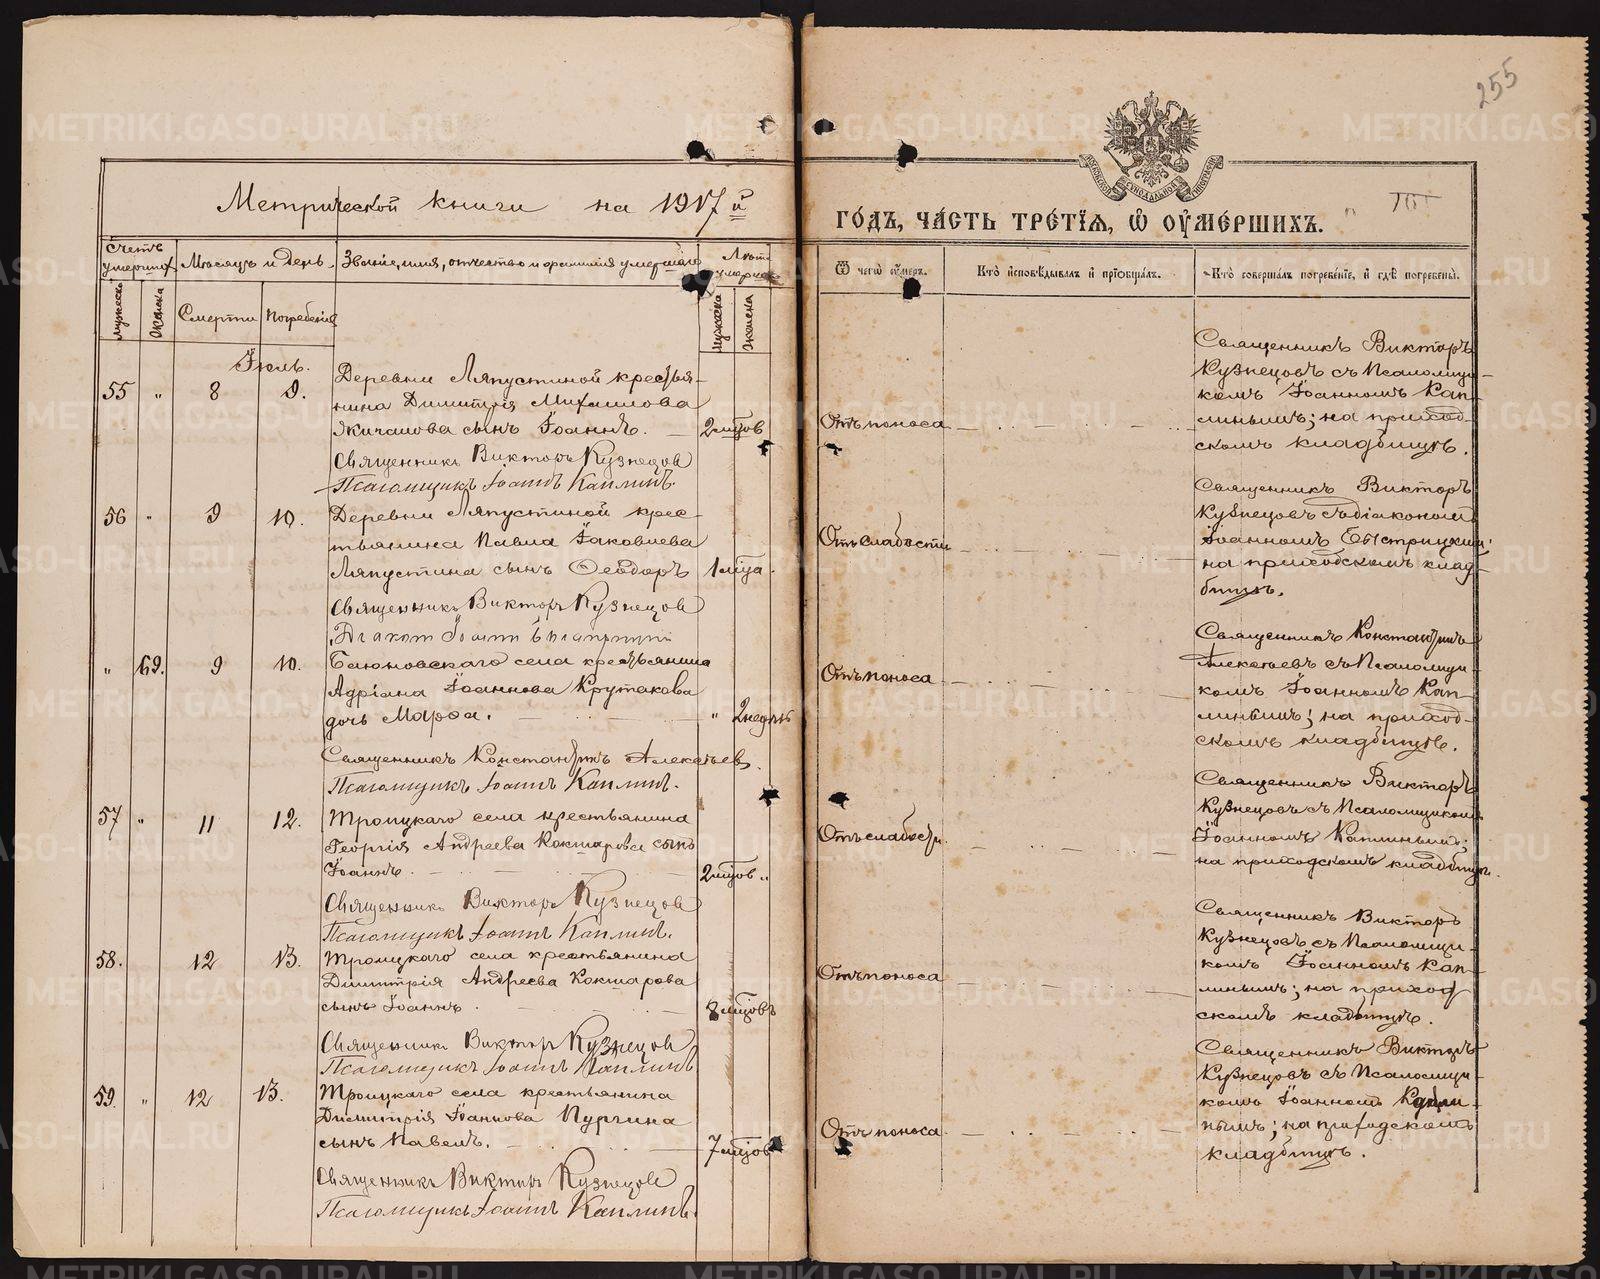 255
Метрической книги на 1917 й
годъ, часть третїѧ, ѡ оумершихъ.
Счетъ умершихъ
Мѣсяцъ и день.
Званіе, имя, отчество и фамилія умершаго
Лѣта умершаго
Ѿ чегѡ оумеръ.
Кто исповѣдывалъ и прїобщалъ.
Кто совершалъ погребенїе, и гдѣ погребены.
мужеска
женска
Смерти
Погребенія
мужеска
женска
Іюль.
55 " 8 9.
Деревни Ляпустиной кресть-
янина Димитрія Михаилова
Якичанова сынъ Іоаннъ. 2 мѣцов
Священникъ Викторъ Кузнецов
Псаломщикъ Іоаннъ Каплинъ.
Отъ поноса
Священникъ Викторъ
Кузнецовъ съ Псаломщи-
комъ Іоанномъ Кап-
линымъ; на приход-
скомъ кладбищѣ.
56 " 9 10.
Деревни Ляпустиной крес-
тьянина Павла Іаковлева
Ляпустина сынъ Ѳеодоръ 1 мѣца.
Священникъ Викторъ Кузнецов
Діакон Іоанн Быстрицкий
Отъ слабости
Священникъ Викторъ
Кузнецовъ съ діакономъ
Іоанномъ Быстрицкимъ
на приходскомъ клад-
бищѣ.
" 69. 9 10.
села крестьянина
Адріана Іоаннова Крутакова
дочь Марѳа. " 2 недѣль
Священникъ Константинъ Алексѣевъ.
Псаломщикъ Іоаннъ Каплинъ.
Отъ поноса
Священникъ Константинъ
Алексѣевъ съ Псаломщи-
комъ Іоанномъ Кап-
линымъ; на приход-
скомъ кладбищѣ.
57 " 11 12.
Троицкаго села крестьянина
Георгія Андреева Кокшарова сынъ
Іоаннъ. 2 мѣцов "
Священникъ Викторъ Кузнецов
Псаломщикъ Іоаннъ Каплинъ.
Отъ слабости
Священникъ Викторъ
Кузнецовъ съ Псаломщикомъ
Іоанномъ Каплинымъ;
на приходскомъ кладбищѣ.
58. 12 13.
Троицкаго села крестьянина
Димитрія Андреева Кокшарова
сынъ Іоаннъ. 8 мѣцовъ
Священникъ Викторъ Кузнецов
Псаломщикъ Іоаннъ Каплинъ
Отъ поноса
Священникъ Викторъ
Кузнецовъ съ Псаломщи-
комъ Іоанномъ Кап-
линымъ; на приход
скомъ кладбищѣ.
59. " 12 13.
Троицкаго села крестьянина
Димитрія Іоаннова Пургина
сынъ Павелъ. 7 мѣцов
Священникъ Викторъ Кузнецов
Псаломщикъ Іоаннъ Каплинъ.
Отъ поноса
Священникъ Викторъ
Кузнецовъ съ Псаломщи-
комъ Іоанномъ Капли-
нымъ; на приходскомъ
кладбищѣ.